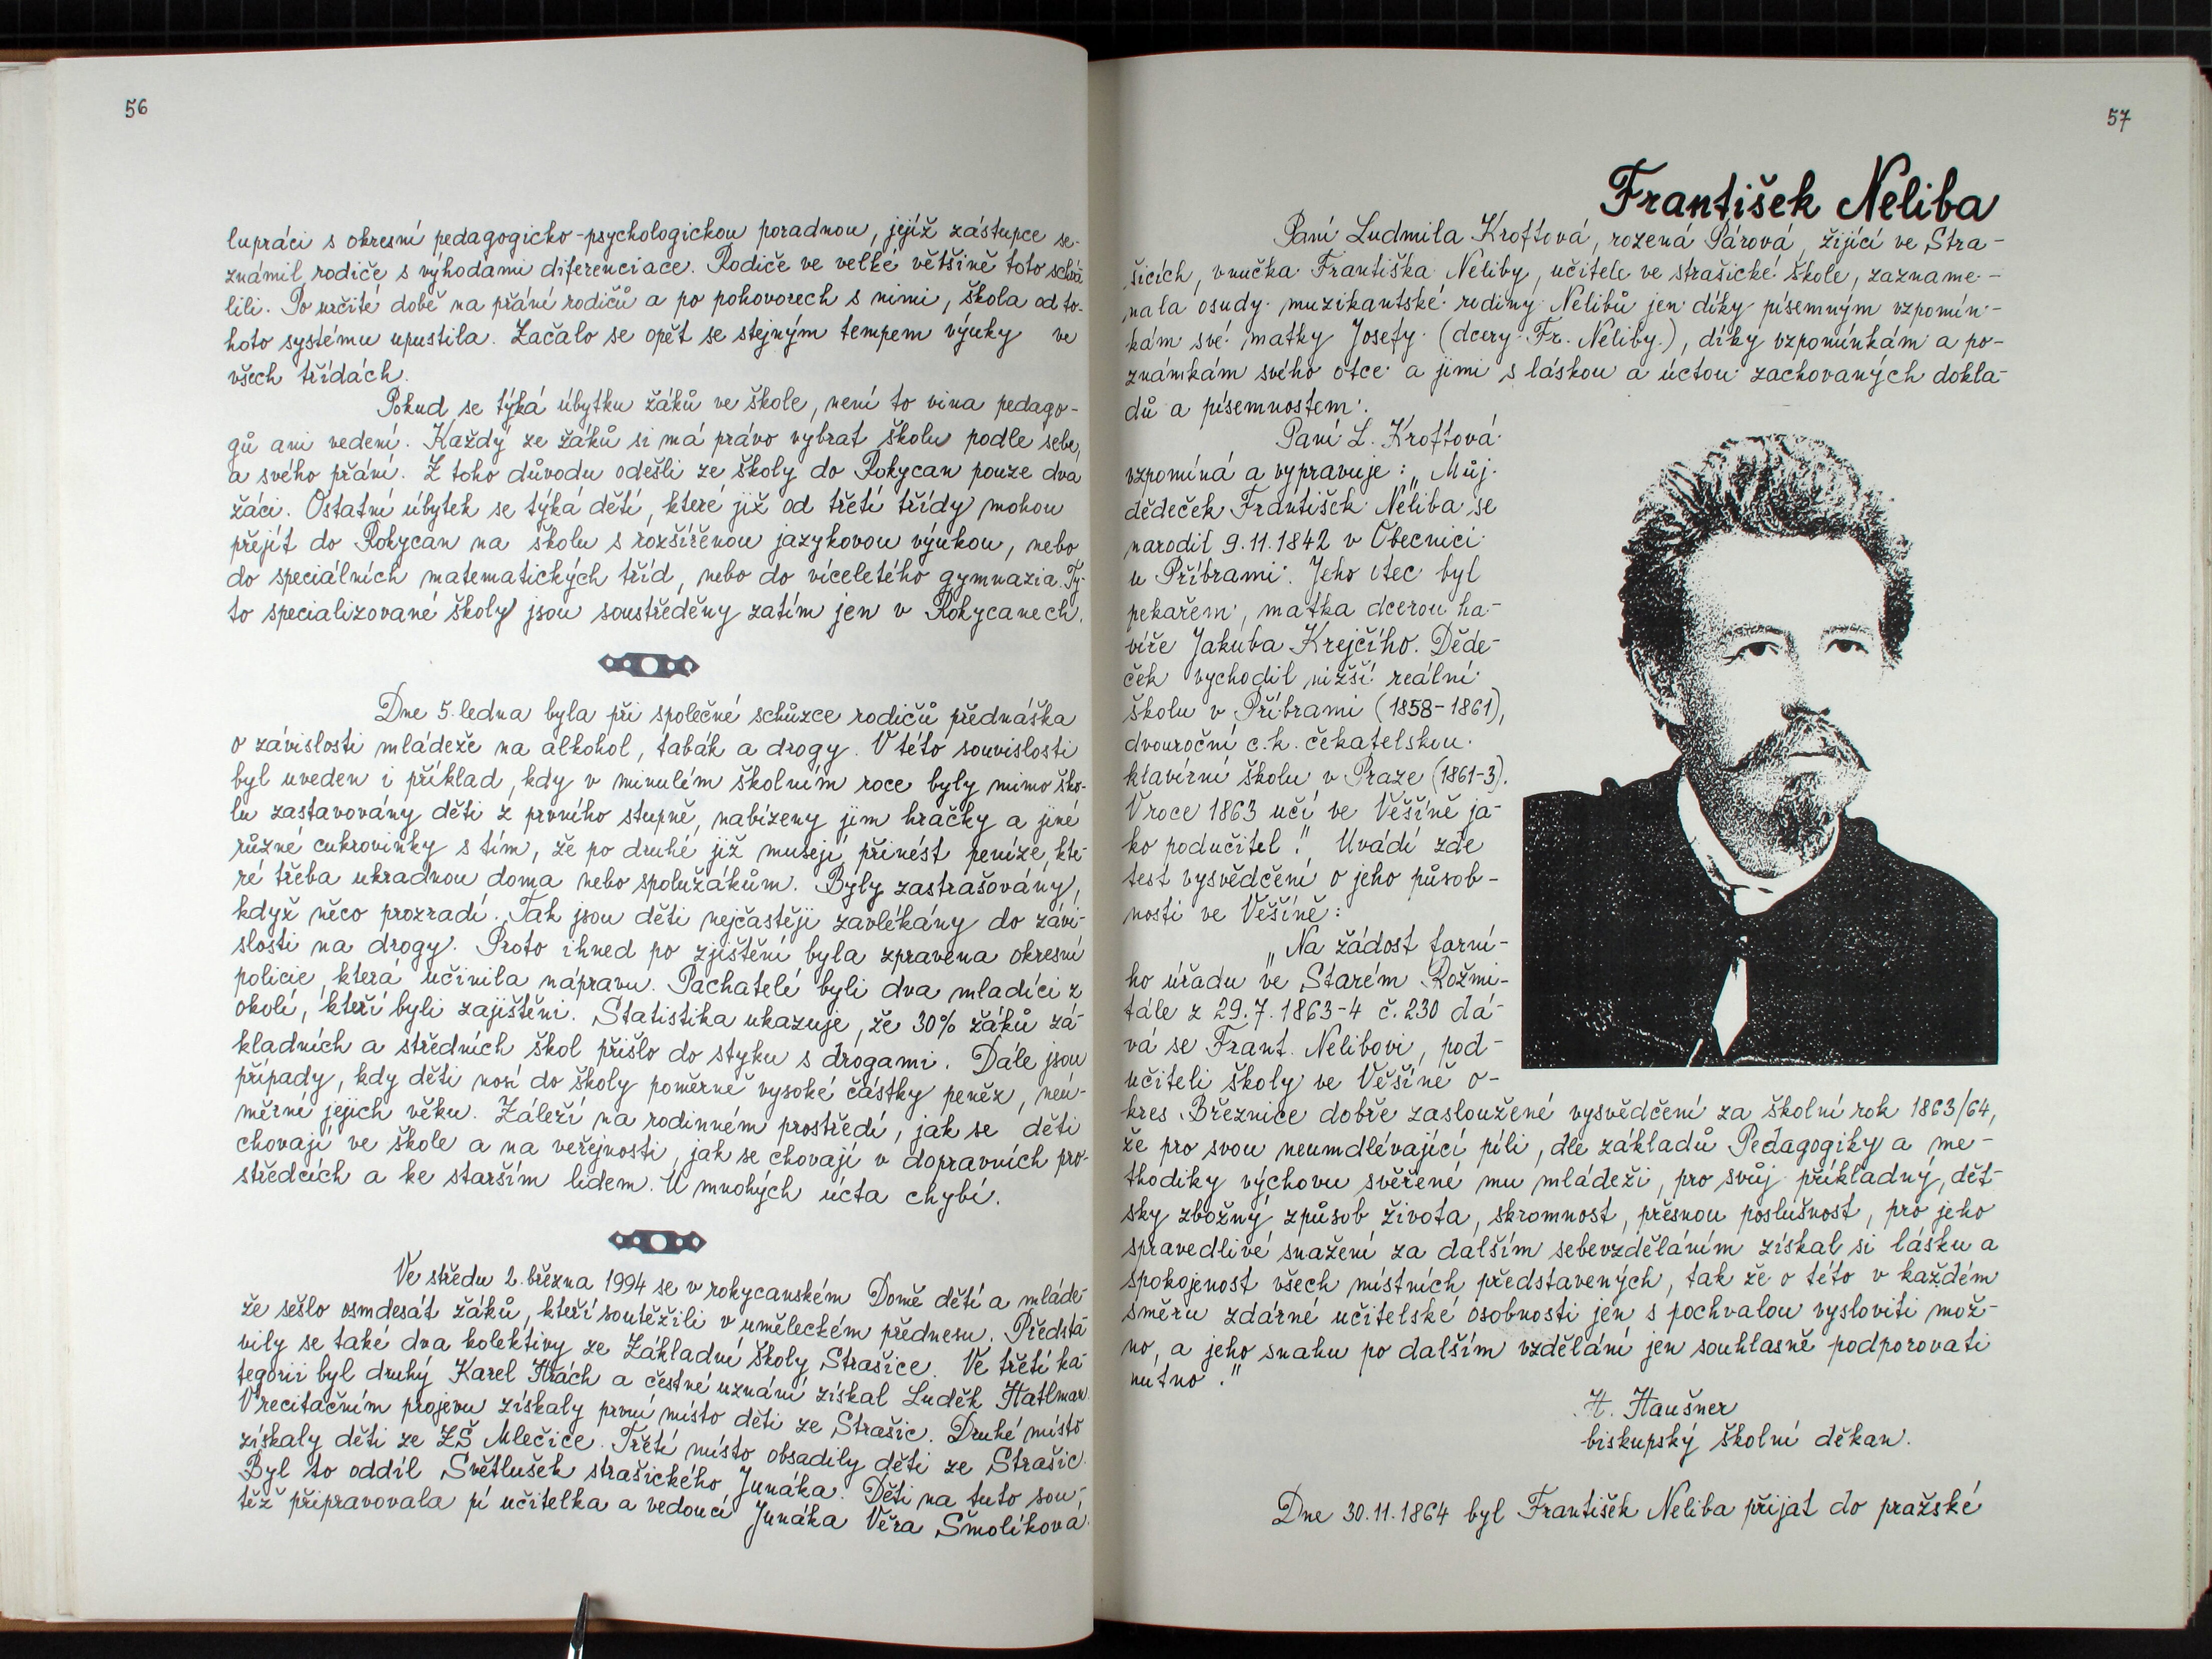 56
lupráci s okresní pedagogicko-psychologickou poradnou, jejíž zástupce se-
známil rodiče s výhodami diferenciace. Rodiče ve velké většině toto schvá
lili. Po určité době na přání rodičů a po pohovorech s nimi, škola od to-
hoto systému upustila. Začalo se opět se stejným tempem výuky ve
všech třídách.
Pokud se týká úbytku žáků ve škole, není to vina pedago-
gů ani vedení. Každý ze žáků si má právo vybrat školu podle sebe,
a svého přání. Z toho důvodu odešli ze školy do Rokycan pouze dva
žáci. Ostatní úbytek se týká dětí, které již od třetí třídy mohou
přejít do Rokycan na školu s rozšířenou jazykovou výukou, nebo
do speciálních matematických tříd, nebo do víceletého gymnazia. Ty-
to specializované školy jsou soustředěny zatím jen v Rokycanech.
Dne 5. ledna byla při společné schůzce rodičů přednáška
o závislosti mládeže na alkohol, tabák a drogy. V této souvislosti
byl uveden i příklad, kdy v minulém školním roce byly mimo ško-
lu zastavovány děti z prvního stupně, nabízeny jim hračky a jiné
různé cukrovinky s tím, že po druhé již musejí přinést peníze, kte-
ré třeba ukradnou doma nebo spolužákům. Byly zastrašovány,
když něco prozradí. Tak jsou děti nejčastěji zavlékány do závi-
slosti na drogy. Proto ihned po zjištění byla zpravena okresní
policie, která učinila nápravu. Pachatelé byli dva mladíci z
okolí, kteří byli zajištěni. Statistika ukazuje, že 30% žáků zá-
kladních a středních škol přišlo do styku s drogami. Dále jsou
případy, kdy děti nosí do školy poměrně vysoké částky peněz, neú-
měrné jejich věku. Záleží na rodinném prostředí, jak se děti
chovají ve škole a na veřejnosti, jak se chovají v dopravních pro-
středcích a ke starším lidem. U mnohých úcta chybí.
Ve středu 2. března 1994 se v rokycanském Domě dětí a mláde-
že sešlo osmdesát žáků, kteří soutěžili v uměleckém přednesu. Předsta-
vily se také dva kolektivy ze Základní školy Strašice. Ve třetí ka-
tegorii byl druhý Karel Hrách a čestné uznání získal Luděk Hatlman.
V recitačním projevu získaly první místo děti ze Strašic. Druhé místo
získaly děti ze ZŠ Mlečice. Třetí místo obsadily děti ze Strašic.
Byl to oddíl Světlušek strašického Junáka. Děti na tuto sou-
těž připravovala pí učitelka a vedoucí Junáka Věra Smolíková.
57
František Neliba
Paní Ludmila Kroftová, rozená Párová, žijící ve Stra-
šicích, vnučka Františka Neliby, učitele ve strašické škole, zazname-
nala osudy muzikantské rodiny Nelibů jen díky písemným vzpomín-
kám své matky Josefy (dcery Fr. Neliby), díky vzpomínkám a po-
známkám svého otce a jimi s láskou a úctou zachovaných dokla-
dů a písemnostem.
Paní L. Kroftová
vzpomíná a vypravuje: „Můj
dědeček František Neliba se
narodil 9.11.1842 v Obecnici
u Příbrami. Jeho otec byl
pekařem, matka dcerou ha-
víře Jakuba Krejčího. Děde-
ček vychodil nižší reální
školu v Příbrami (1858-1861),
dvouroční c.k. čekatelskou
klavírní školu v Praze (1861-3).
V roce 1863 učí ve Věšíně ja-
ko podučitel." Uvádí zde
test vysvědčení o jeho působ-
nosti ve Věšíně:
„Na žádost farní-
ho úřadu ve Starém Rožmi-
tále z 29.7.1863-4 č.230 dá-
vá se Frant. Nelibovi, pod-
učiteli školy ve Věšíně o-
kres Březnice dobře zasloužené vysvědčení za školní rok 1863/64,
že pro svou neumdlévající píli, dle základů Pedagogiky a me-
thodiky výchovu svěřené mu mládeži, pro svůj příkladný, dět-
sky zbožný způsob života, skromnost, přesnou poslušnost, pro jeho
spravedlivé snažení za dalším sebevzděláním získal si lásku a
spokojenost všech místních představených, tak že o této v každém
směru zdárné učitelské osobnosti jen s pochvalou vysloviti mož-
no, a jeho snahu po dalším vzdělání jen souhlasně podporovati
nutno."
H. Haušner
biskupský školní děkan.
Dne 30.11.1864 byl František Neliba přijat do pražské